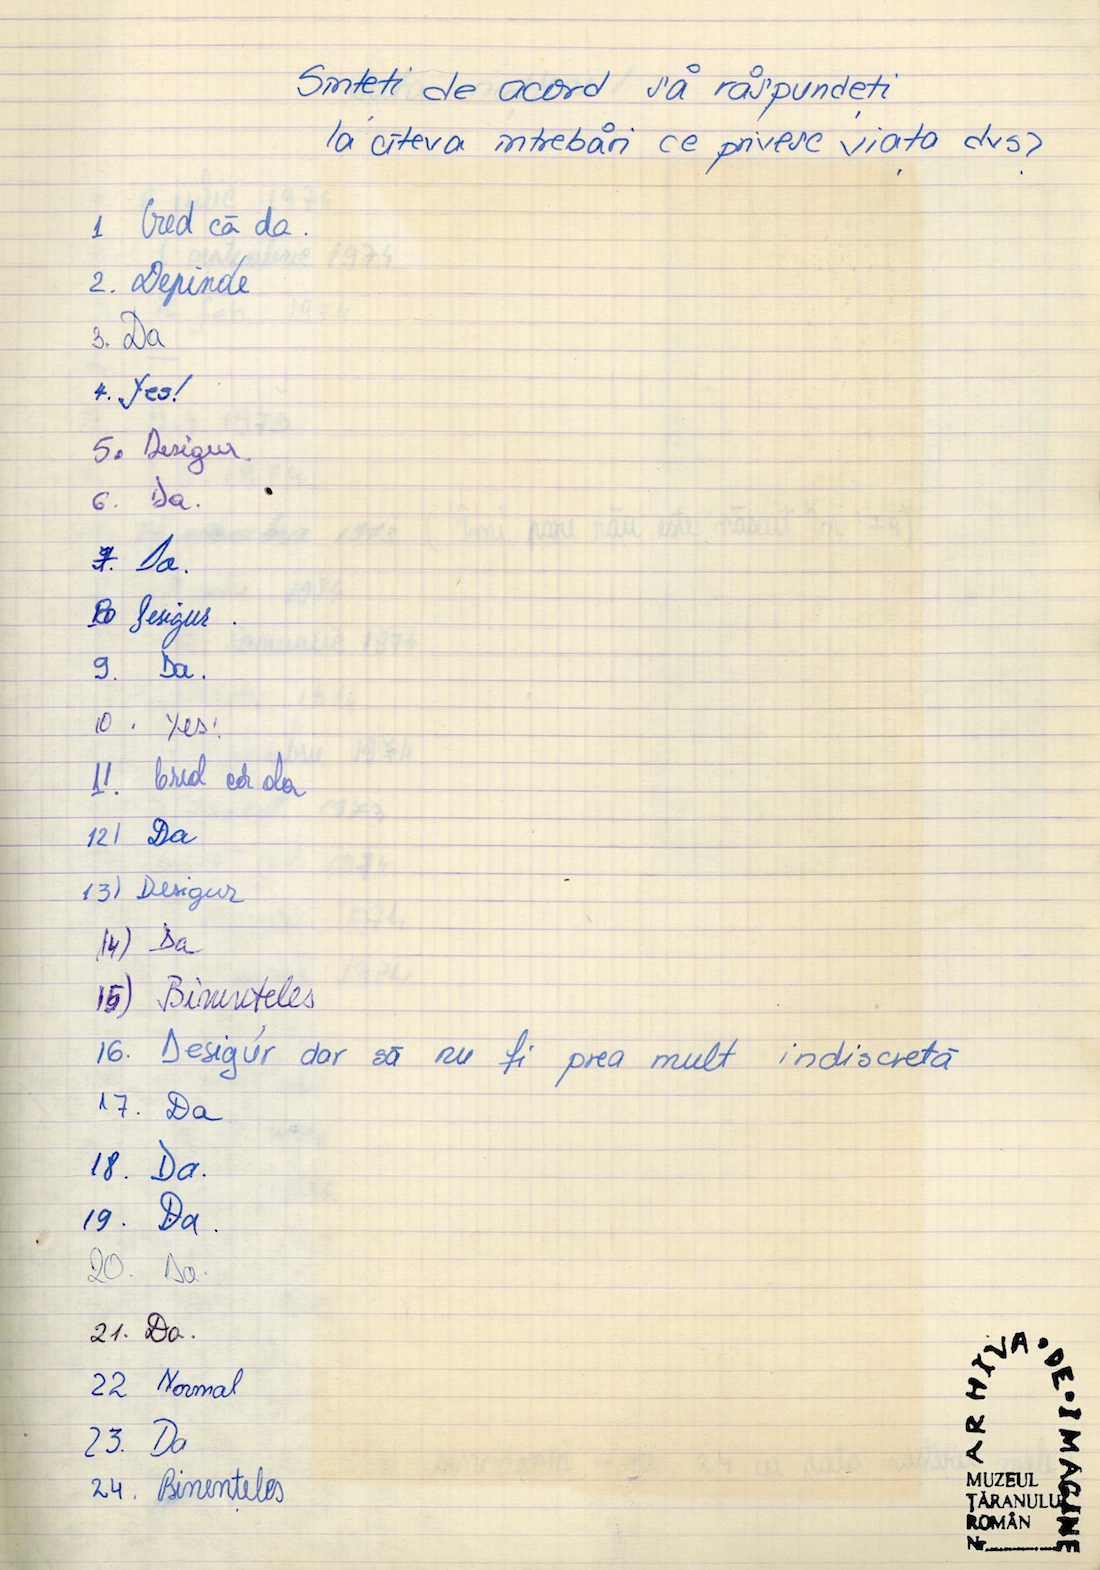 Sînteti de acord să răspundeti
la cîteva intrebări ce privesc viata dvs?
1 Cred că da.
2. Depinde
3. Da
4. Yes!
5. Desigur.
6. Da.
7. Da.
8 Desigur.
9. Da.
10. Yes!
11. Cred că da
12) Da
13) Desigur
14) Da
15) Bineînteles
16. Desigur dar să nu fi prea mult indiscretă
17. Da
18. Da.
19. Da.
20. Da.
21. Da.
22 Normal
23. Da
24. Binențeles
ARHIVA • DE • IMAGINE
MUZEUL
ȚĂRANULUI
ROMÂN
Nr.